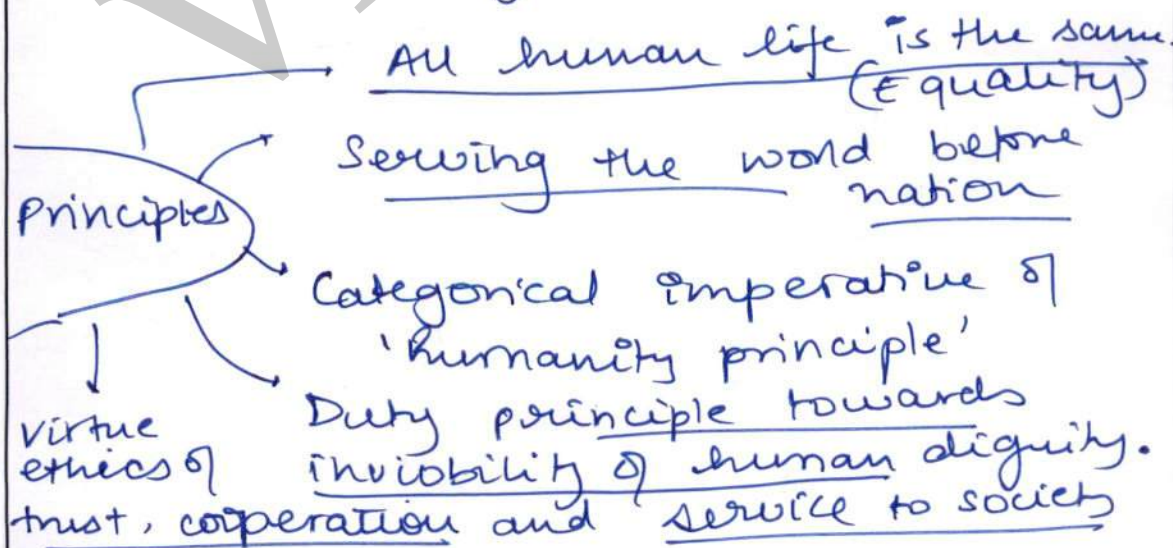 All human life is the same.
(Equality)
Serving the world before
nation
Principles
Categorical imperative of
'humanity principle'
Duty principle towards
inviobility of human dignity.
virtue
ethics of
trust, cooperation and service to society